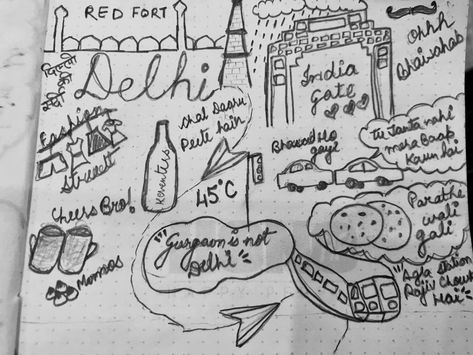 RED FORT
Delhi
India
gate
Ohhh
Bhaisahab
Fashion
Street
Chal Daaru
Peete hain
Keventers
45°C
tu janta nahi
mera baap
Kaun hai
Cheers Bro!
Momos
"Gurgaon is not
Delhi"
Parathe
wali
gali
"Agla Station
Rajiv Chowk
Hai"